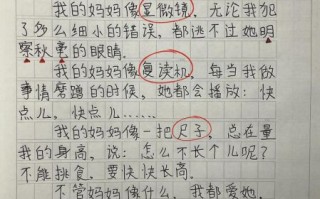 我的妈妈像显微镜,无论我犯
了多么细小的错误,都逃不过她明
察秋毫的眼睛。
我的妈妈像复读机,每当我做
事情磨蹭的时候,她都会播放:快
点儿,快点儿……
我的妈妈像一把尺子,总在量
我的身高,说:怎么不长个儿呢?
不能挑食,要快快长高。
不管妈妈像什么,我都爱她。